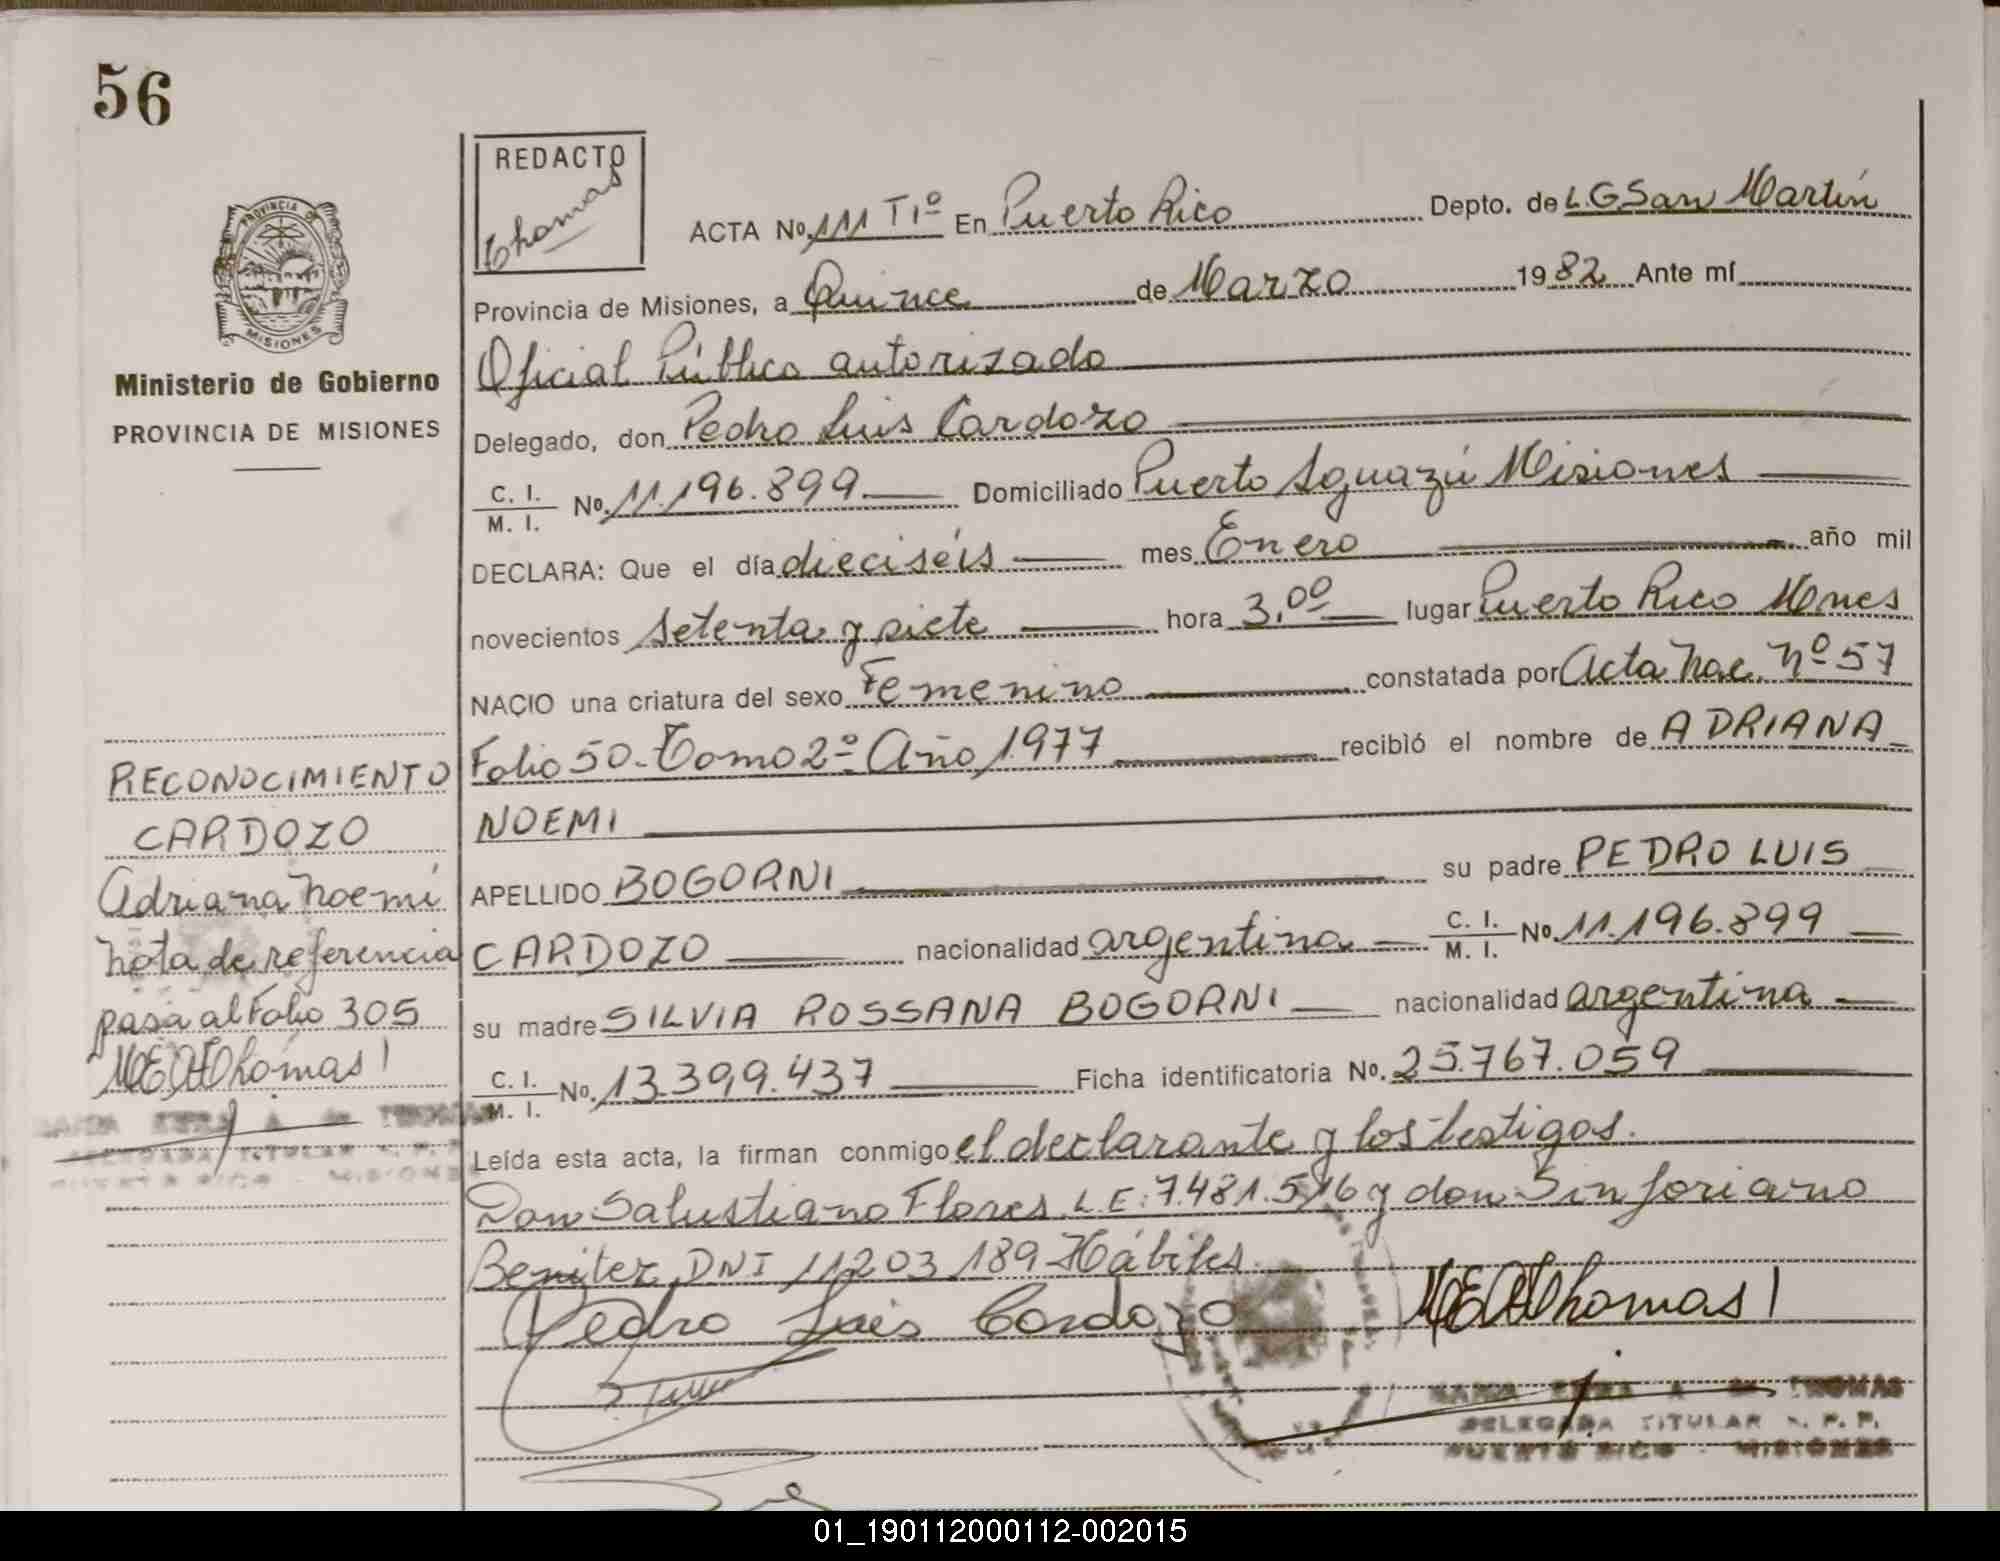 56
REDACTO
Thomas
PROVINCIA DE
MISIONES
Ministerio de Gobierno
PROVINCIA DE MISIONES
ACTA No. 111 T1º En Puerto Rico Depto. de L.G.San Martín
Provincia de Misiones, a Quince de Marzo 1982 Ante mí
Oficial Público autorizado
Delegado, don Pedro Luis Cardozo
C. I.
M. I. No. 11.196.899 Domiciliado Puerto Iguazú Misiones
DECLARA: Que el día dieciséis mes Enero año mil
novecientos setenta y siete hora 3,00 lugar Puerto Rico Mnes
NACIO una criatura del sexo Femenino constatada por Acta Nac. Nº 57
Folio 50- Tomo 2º Año 1977 recibió el nombre de ADRIANA
NOEMI
APELLIDO BOGORNI su padre PEDRO LUIS
CARDOZO nacionalidad argentina C. I. M. I. No. 11.196.899
su madre SILVIA ROSSANA BOGORNI nacionalidad argentina
C. I.
M. I. No. 13.399.437 Ficha identificatoria No. 25.767.059
Leída esta acta, la firman conmigo el declarante y los testigos.
Don Salustiano Flores L.E: 7.481.516 y don Sinforiano
Benitez DNI 11203189 Hábiles
Pedro Luis Cardozo
MEAThomas
MARIA A de THOMAS
DELEGADA TITULAR R. P. P.
PUERTO RICO - MISIONES
RECONOCIMIENTO
CARDOZO
Adriana Noemí
Nota de referencia
pasa al Folio 305
MEAThomas
MARIA A de THOMAS
DELEGADA TITULAR R. P. P.
PUERTO RICO - MISIONES
01_190112000112-002015